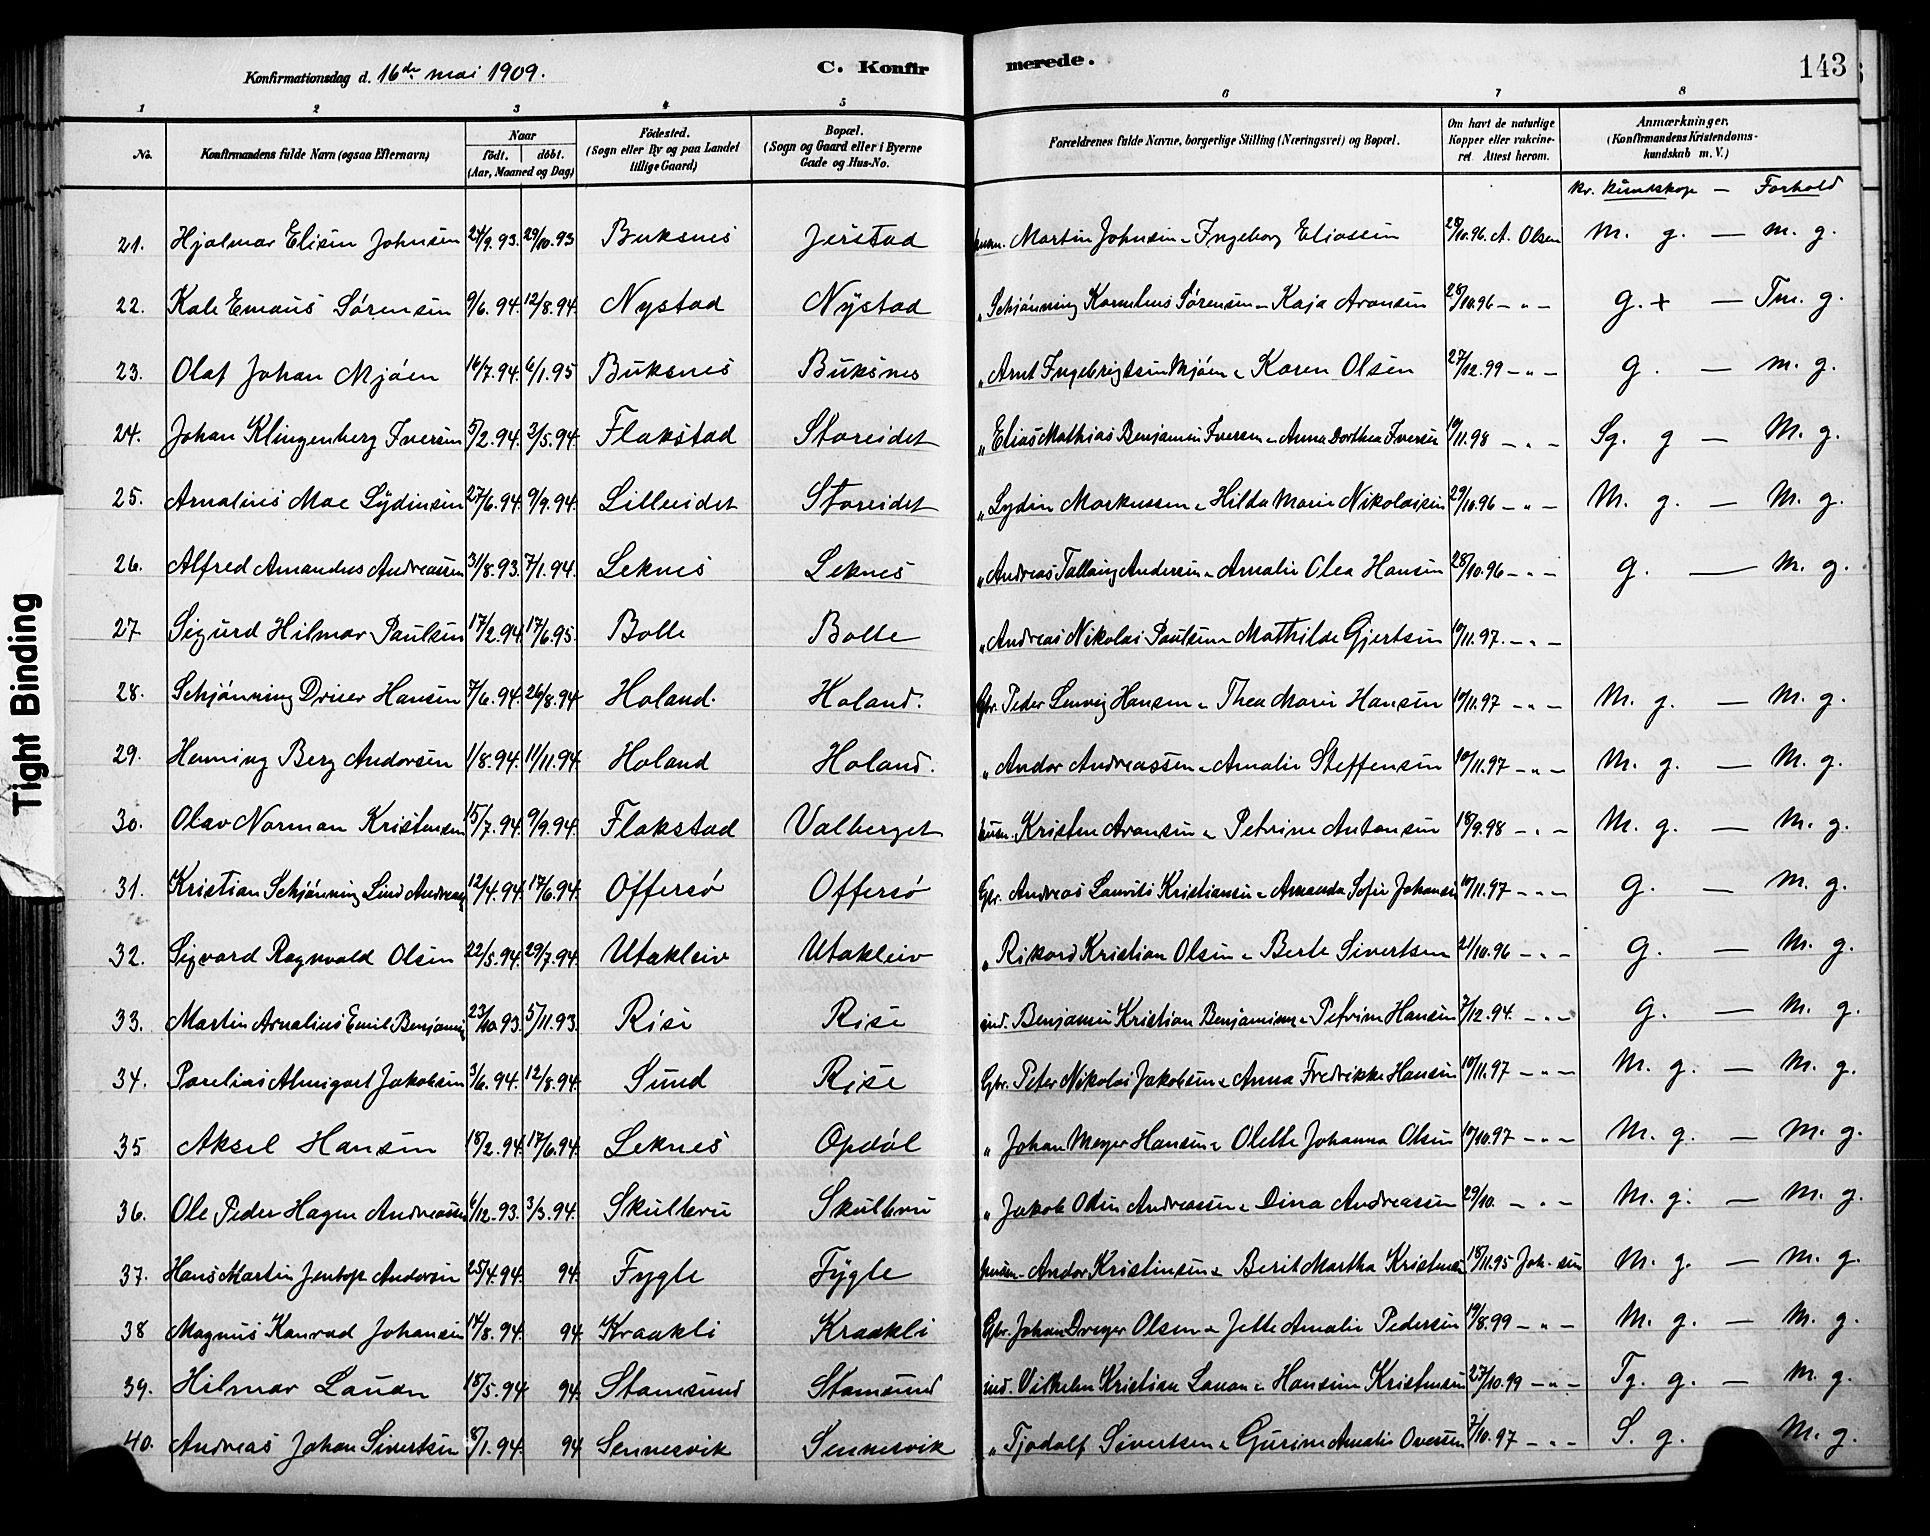 Konfirmationsdag d. 16de mai 1909. C. Konfirmerede. 143
1 2 3 4 5 6 7 8
No. Konfirmandens fulde Navn (ogsaa Efternavn) Naar födt. döbt. (Aar, Maaned og Dag) Födested. (Sogn eller By og paa Landet tillige Gaard) Bopæl. (Sogn og Gaard eller i Byerne Gade og Hus-No. Forældrenes fulde Navne, borgerlige Stilling (Næringsvei) og Bopæl. Om havt de naturlige Kopper eller vakcineret. Attest herom. Anmærkninger. (Konfirmandens Kristendomskundskab m. V.)
Kr. kundskap — Forhold
21. Hjalmar Elisen Johnsen 24/9.93. 29/10.93 Buksnes Jerstad Martin Johnsen - Ingeborg Eliassen 28/10.96. A. Olsen M. g. — m. g.
22. Kale Emaus Sørensen 9/6.94. 12/8.94. Nystad Nystad " Schjønning Kornelius Sørensen - Kaja Aronsen 28/10.96 - " - g. + — Tm. g.
23. Olaf Johan Mjøen 16/7.94. 6/1.95 Buksnes Buksnes " Arnt Ingebrigtsen Mjøen - Karen Olsen 27/12.99 - " - g. — m. g.
24. Johan Klingenberg Iversen 5/2.94. 3/5.94. Flakstad Storeidet " Elias Mathias Benjamin Iversen - Anna Dorthea Iversen 10/11.98 - " - Sg. g — M. g.
25. Arnalius Mac Lydinsen 27/6.94. 9/9.94. Lilleeidet Storeidet " Lydin Markussen - Hilda Marie Nikolaisen 29/10.96 - " - M. g. — M. g.
26. Alfred Amandus Andreassen 31/8.93. 7/1.94. Leknes Leknes " Andreas Tallaug Andersen - Amalie Olea Hansen 28/10.96 - " - g. — M. g.
27 Sigurd Hilmar Paulsen 17/2.94. 17/6.95. Bolle Bolle " Andreas Nikolai Paulsen - Mathilde Gjertsen 10/11.97. - " -
28. Schjønning Driver Hansen 7/6.94. 26/8.94 Holand. Holand. Gbr. Peder Lenvig Hansen - Thea Marie Hansen 10/11.97 - " - M. g. — M. g.
29. Henning Berg Andorsen 1/8.94. 11/11.94. Holand Holand. " Andor Andreassen - Amalie Steffensen 10/11.97 - " - M. g. — M. g.
30. Olav Norman Kristensen 15/7.94. 9/9.94. Flakstad Valberget Kristen Aronsen - Petrine Antonsen 18/9.98 - " - M. g. — M. g.
31. Kristian Schjønning Lind Andreas 12/4.94. 17/6.94. Offersø Offersø Gbr. Andreas Laurits Kristiansen - Amanda Sofie Johansen 10/11.97 - " - g. — M. g.
32. Sigvard Ragnvald Olsen 22/5.94. 29/7.94. Utakleiv Utakleiv " Rikard Kristian Olsen - Berte Sivertsen 21/10.96 - " - g. — M. g.
33. Martin Arnalius Emil Benjamins 23/10.93. 5/11.93. Rise Rise ind. Benjamin Kristian Benjamins - Petrine Hansen 7/12.94. - " - g. — M. g.
34. Parelius Almigart Jakobsen 3/6.94. 12/8.94. Sund Rise Gbr. Peter Nikolai Jakobsen - Anna Fredrikke Hansen 10/11.97 - " - M. g. — M. g.
35 Aksel Hansen 18/2.94. 17/6.94. Leknes Opdøl " Johan Meyer Hansen - Olette Johanna Olsen 10/10.97 - " - M. g. — M. g.
36. Ole Peder Hagen Andreassen 6/12.93. 3/3.94. Skulbru Skulbru " Jakob Odin Andreassen - Dina Andreassen 29/10. - " - M. g. — M. g.
37. Hans Martin Jentoft Andorsen 25/4.94. 94. Fygle Fygle Andor Kristensen - Berit Martha Kristensen 18/11.95 Joh-sen M. g. — M. g.
38 Magnus Konrad Johansen 14/8.94. 94. Kraakli Kraakli Gbr. Johan Dreyer Olsen - Jette Amalie Pedersen 19/8.99 - " - M. g. — M. g.
39. Hilmar Lauan 18/5.94. 94. Stamsund Stamsund ind. Vilhelm Kristian Lauan - Hansine Kristensen 27/10.99 - " - Tg. g. — M. g.
40. Andreas Johan Sivertsen 8/1.94. 94. Sennesvik Sennesvik " Tjodolf Sivertsen - Gurine Amalie Oversen 7/10.97 - " - S. g. M. g.
Tight Binding